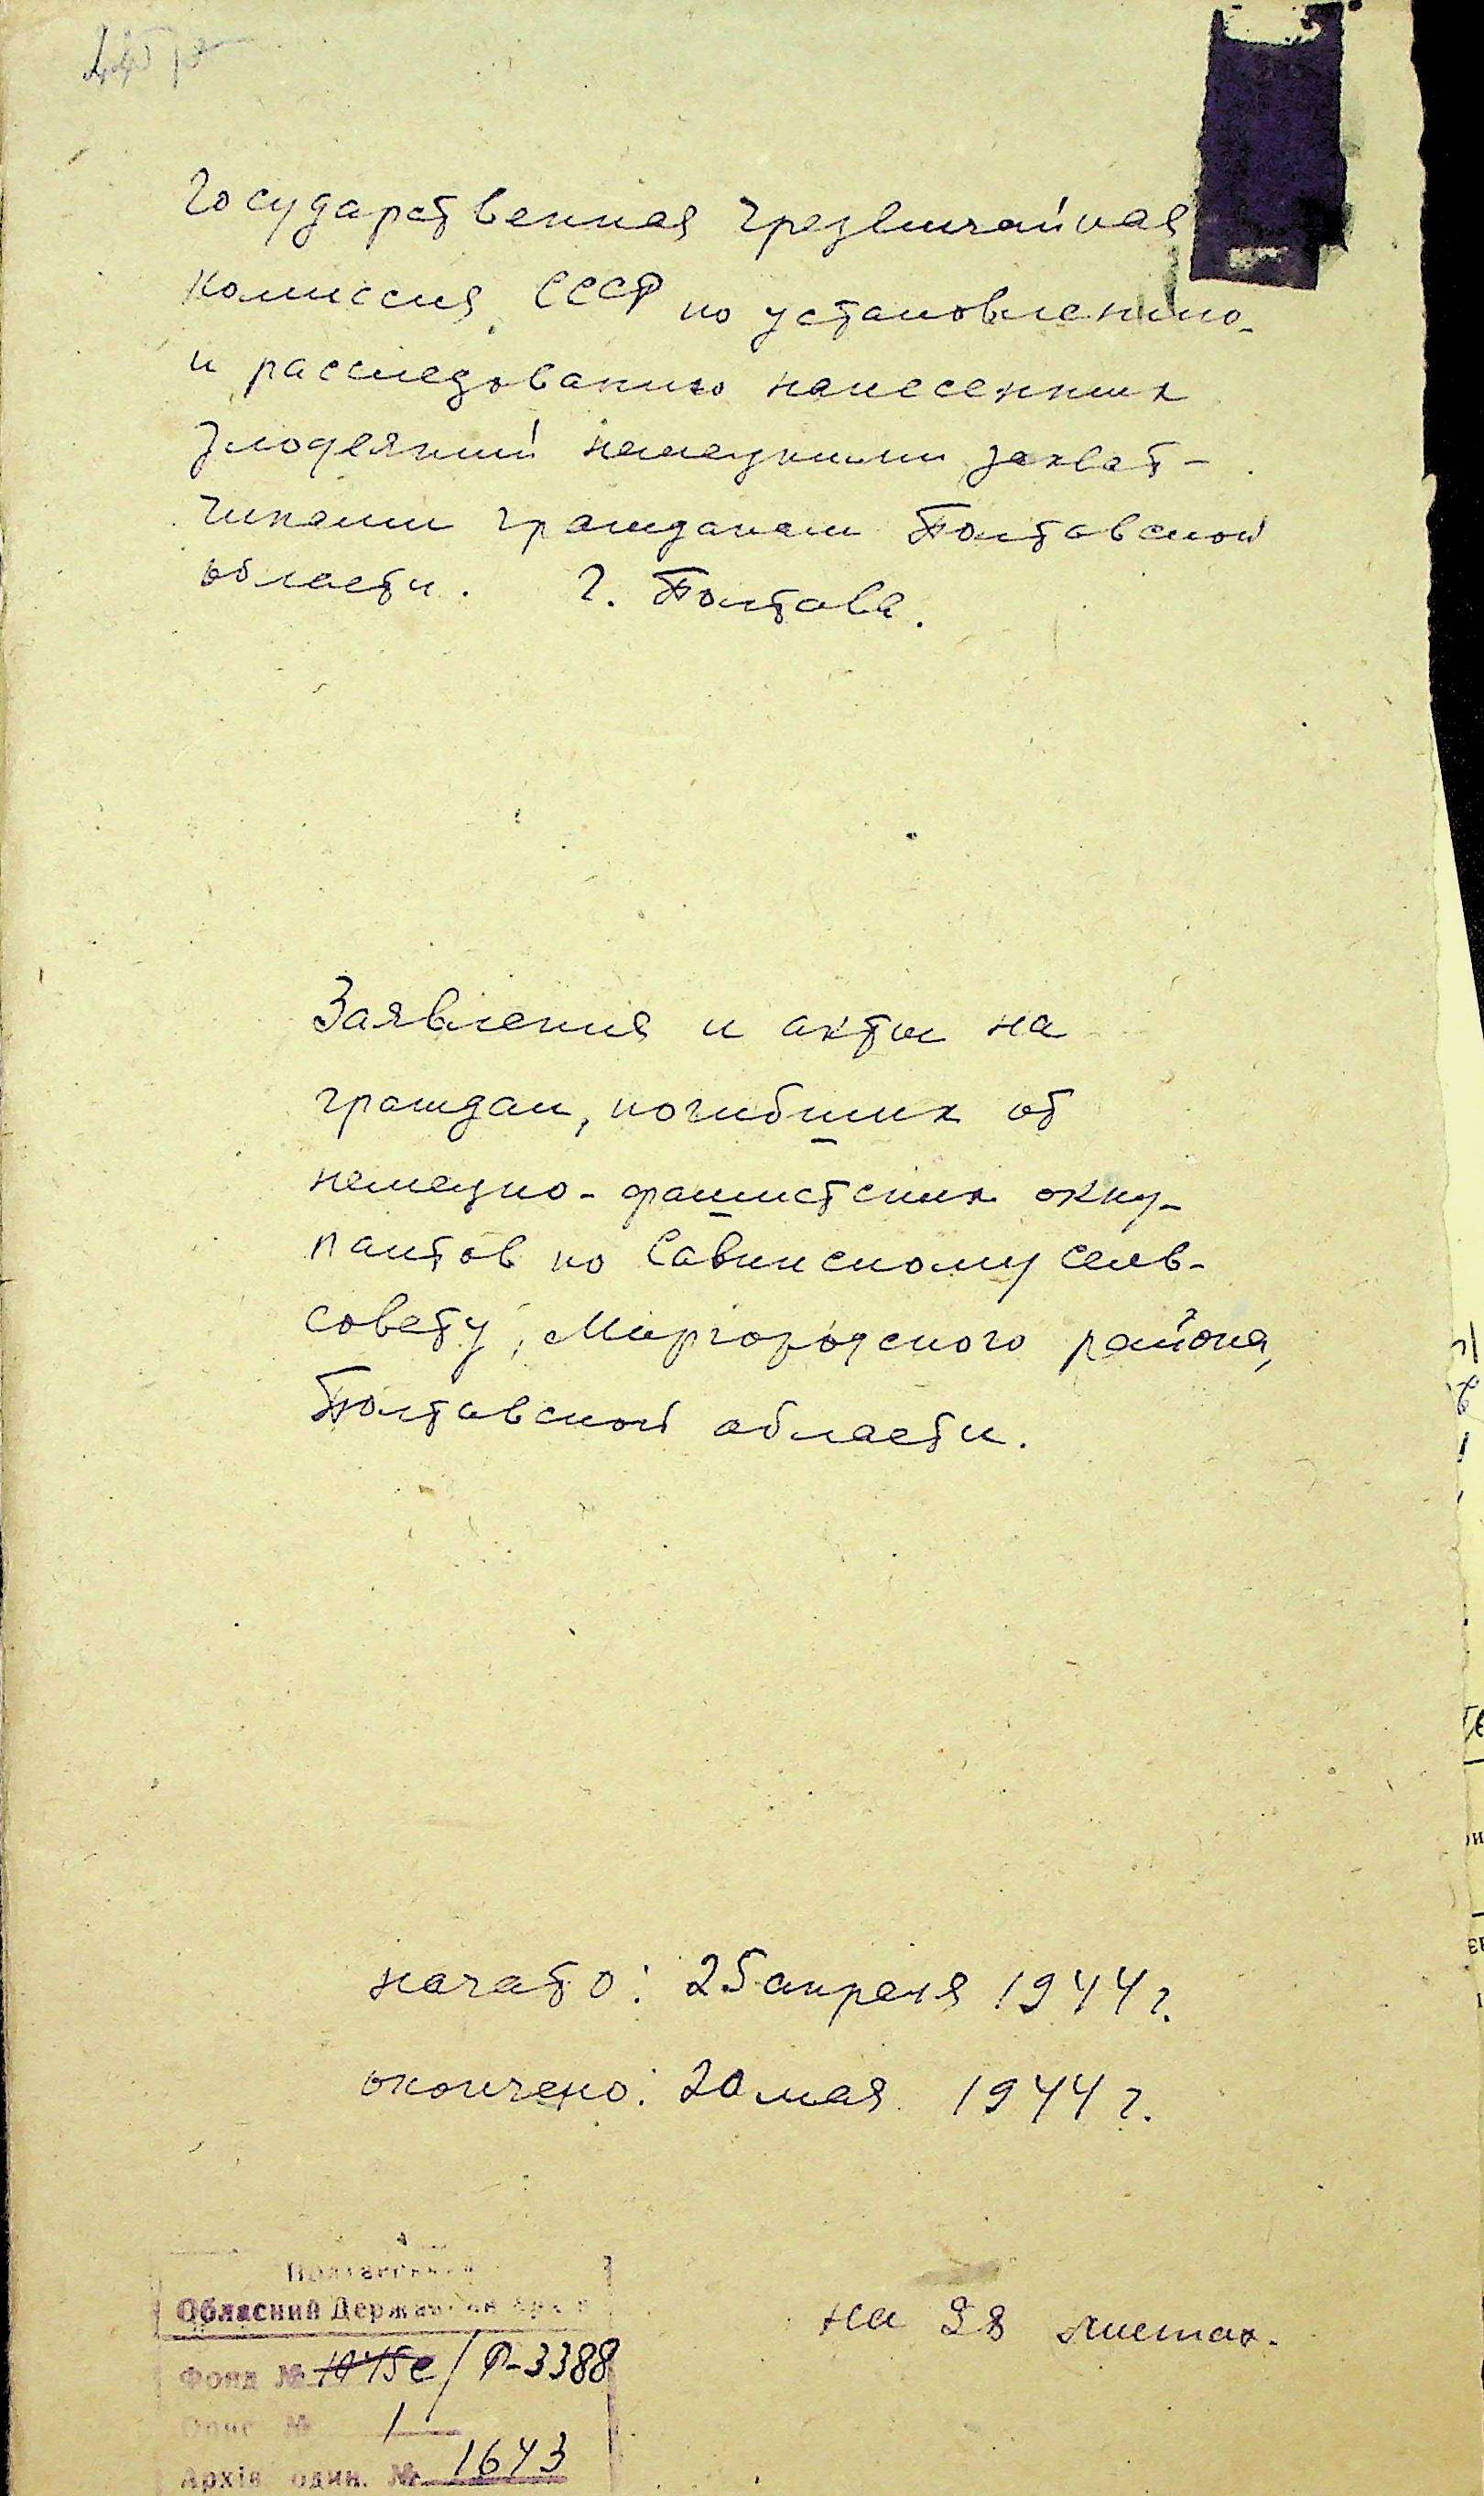 Государственная Чрезвичайная
Комиссия СССР по установлению
и расследованию нанесенных
злодеяний немецкими захват-
чиками гражданам Полтавской
области. г. Полтава.
Заявления и акты на
граждан, погибших от
немецко-фашистских окку-
пантов по Савинскому сель-
совету, Миргородского района,
Полтавской области.
начато: 25 апреля 1944 г.
окончено: 20 мая 1944 г.
на листах.
Обласний Державний Архів
Фонд № Р-3388
Опис № 1
Архів. один. № 1643